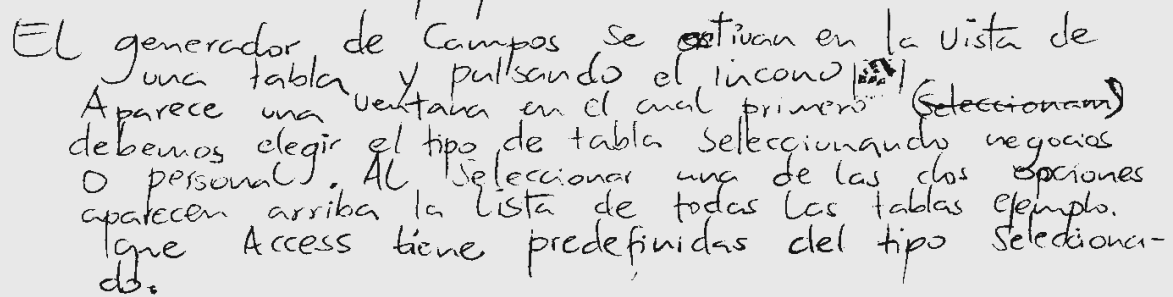 EL generador de Campos se activan en la vista de
una tabla y pullsando el incono
Aparece una ventana en el cual primero (Seleccionam)
debemos elegir el tipo de tabla Selecciunando negocios
O personal. AL Seleccionar una de las dos opciones
aparecen arriba la Lista de todas Las tablas ejemplo.
que Access tiene predefinidas del tipo Selecciona-
do.